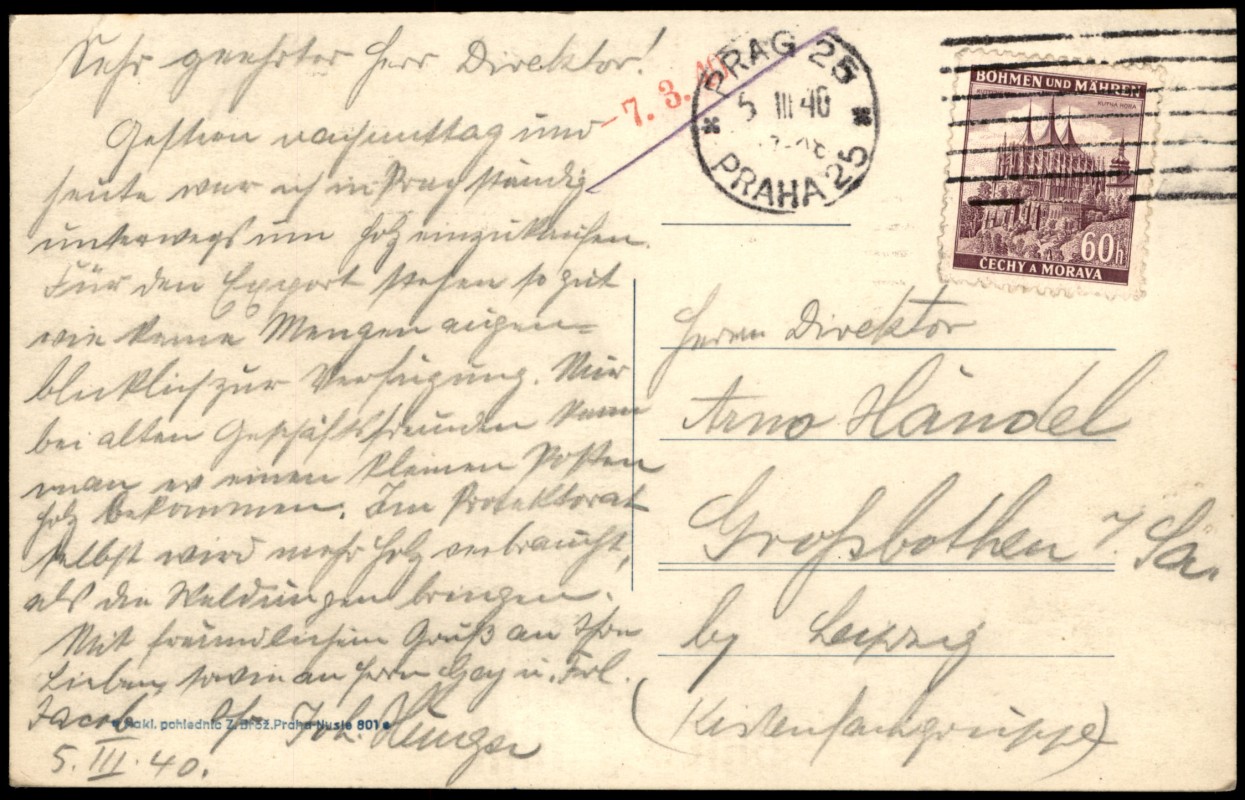 Sehr geehrter Herr Direktor!
Gestern nachmittag und
heute war ich in Prag ständig
unterwegs um Holz einzukaufen.
Für den Export stehen so gut
wie keine Mengen augen=
blicklich zur Verfügung. Nur
bei alten Geschäftsfreunden kann
man einen kleinen Posten
Holz bekommen. Im Protektorat
selbst wird mehr Holz verbraucht,
als die Waldungen bringen.
Mit freundlichem Gruß an Ihre
Lieben, sowie an Herrn Gey u. Frl.
Jacob Ihr Joh.
5.III.40.
Nakl. pohlednic Z. Brož. Praha-Nusle 801
-7. 3. 40
PRAG 25
5 III 40
PRAHA 25
BÖHMEN UND MÄHREN
KUTNÁ HORA
60h
ČECHY A MORAVA
Herrn Direktor
Arno Händel
Großbothen i/Sa.
by Leipzig
(Kistenfachgruppe)